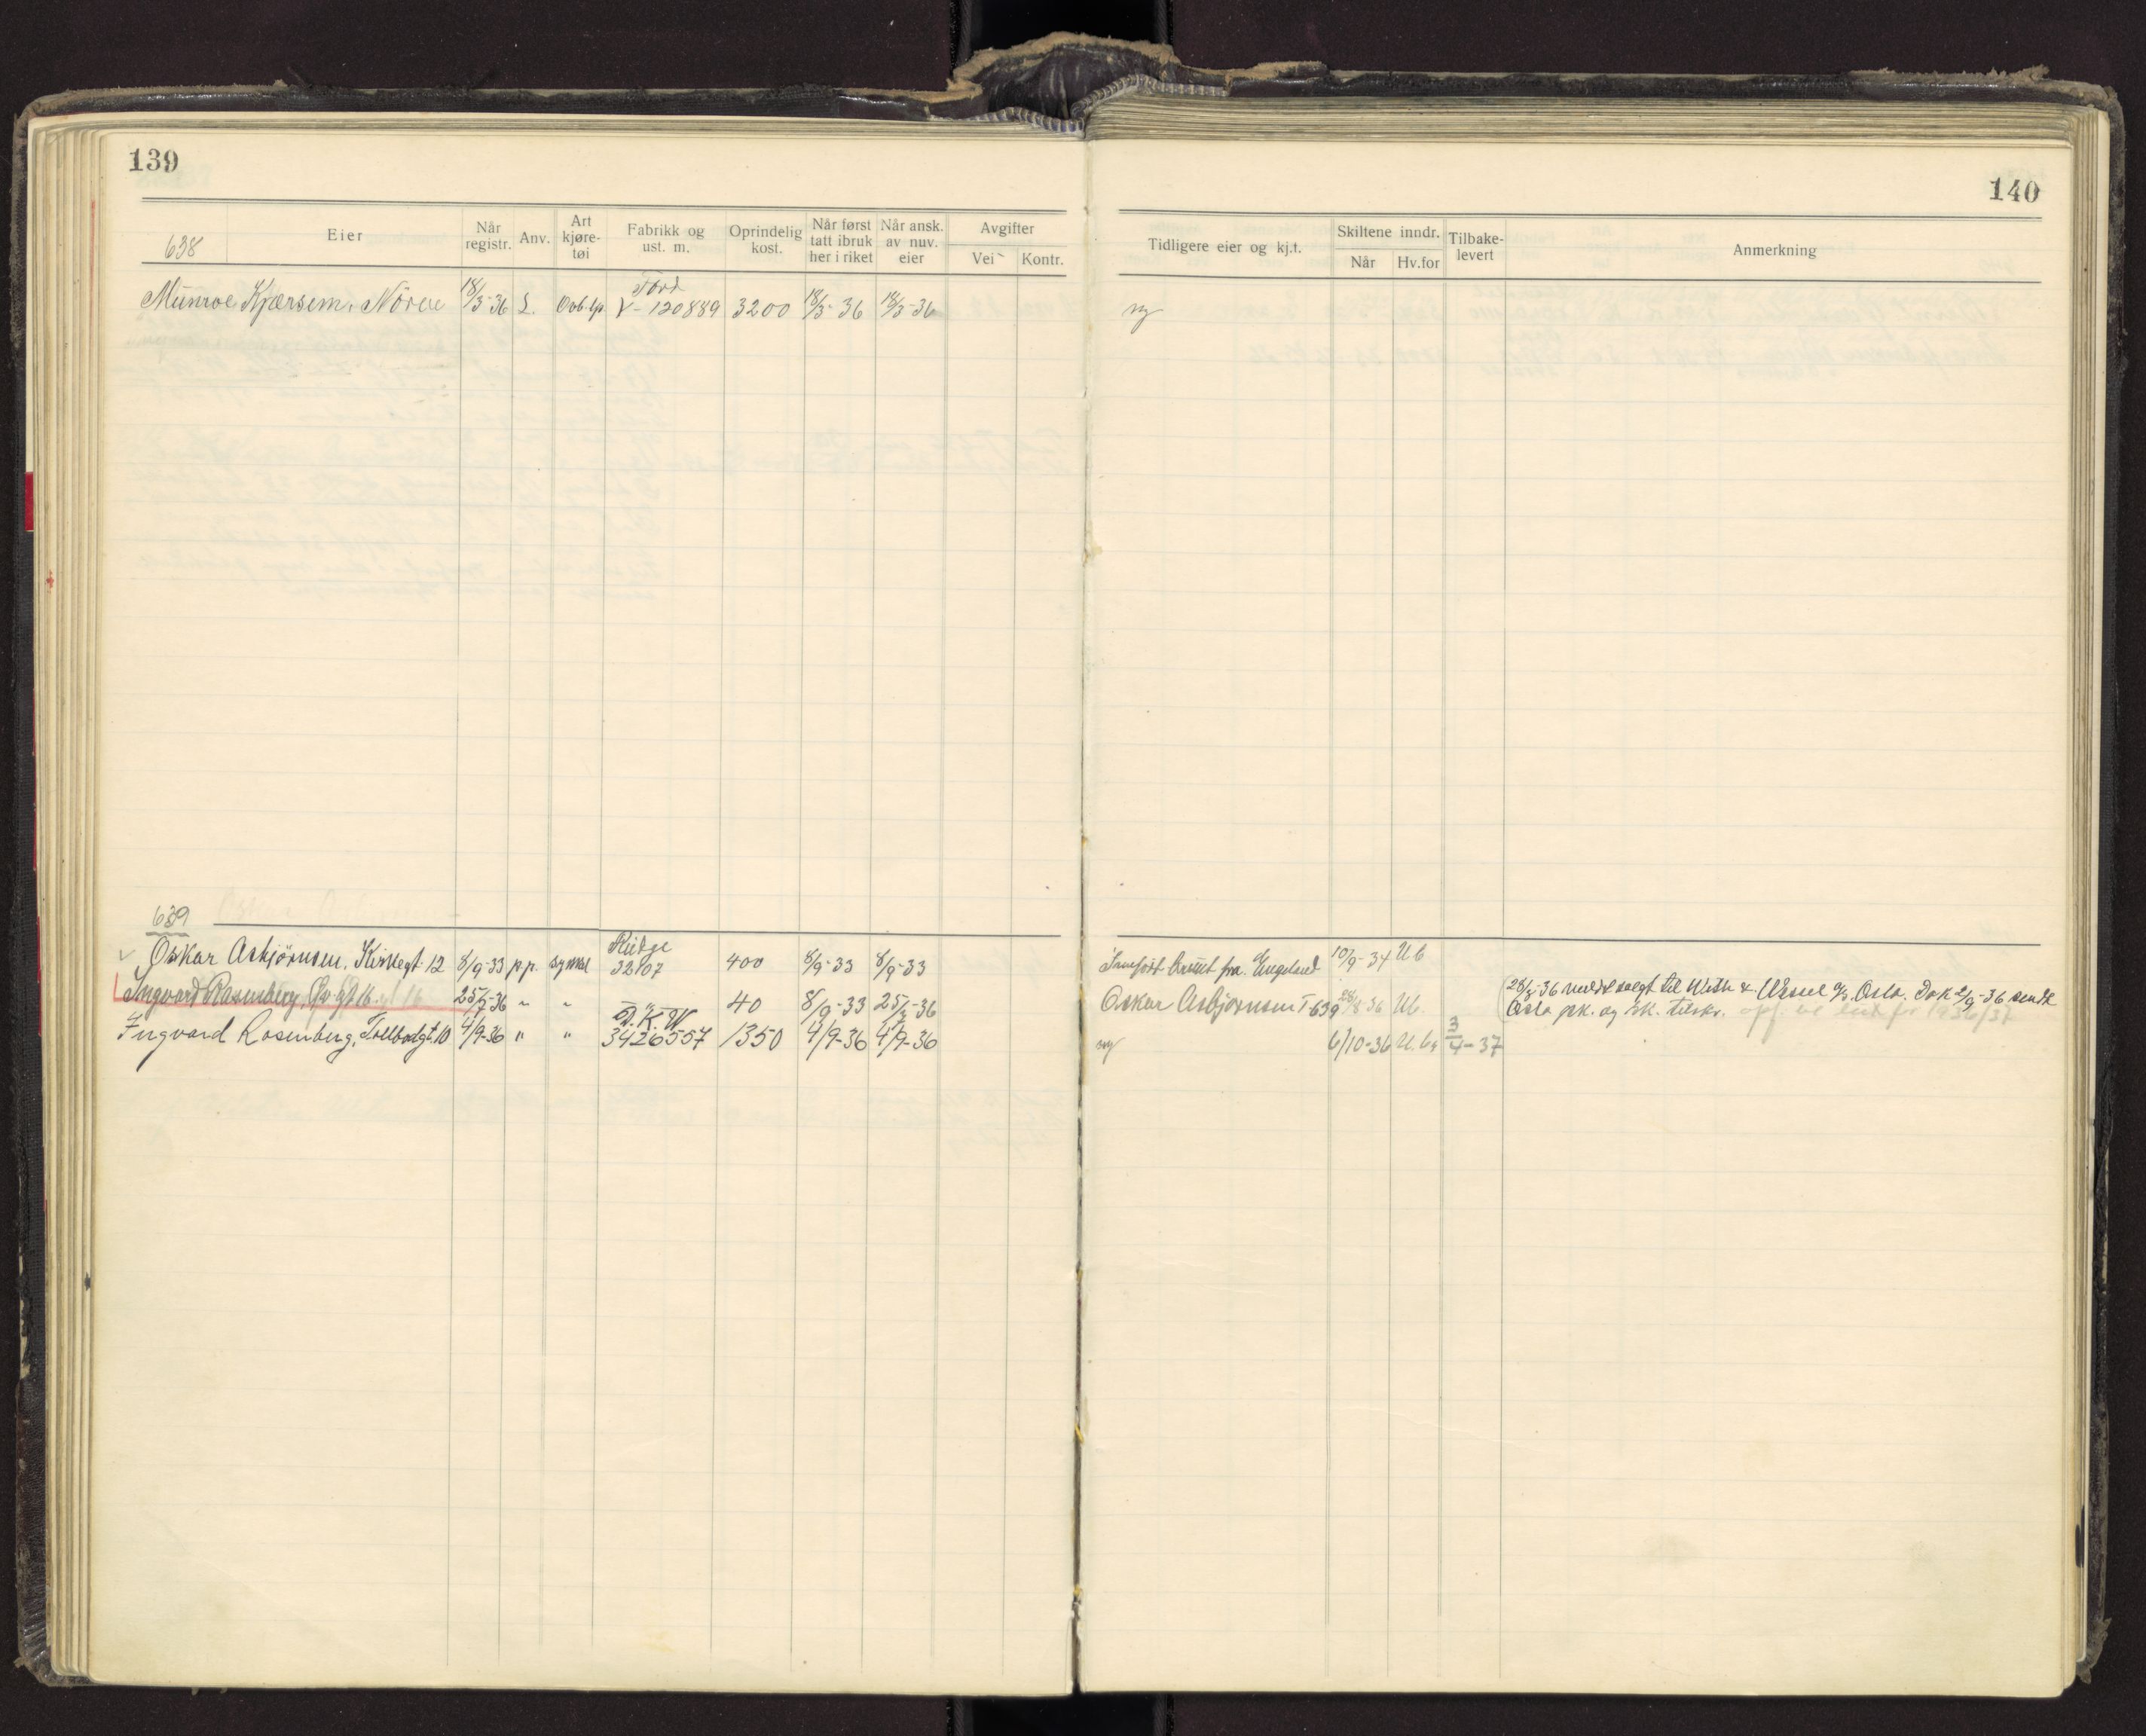 139
140
Eier
Når registr.
Anv.
Art kjøre-tøi
Fabrikk og ust. m.
Oprindelig kost.
Når først tatt ibruk her i riket
Når ansk. av nuv. eier
Avgifter
Vei
Kontr.
Tidligere eier og kj.t.
Skiltene inndr.
Når
Hv.for
Tilbake-levert
Anmerkning
638
Ford
Munroe Kjærsem, Nörve 18/3-36 L. V-120889 3200 18/3-36 18/3-36 ny
639
Rudge
Oskar Asbjörnsen, Kirkegt. 12 8/9-33 p.p. 32107 400 8/9-33 8/9-33 Innfört brukt fra Engeland 10/9-34 Ub
Ingvard Rosenberg, 16 25/7-36 " " 40 8/9-33 25/7-36 Oskar Asbjörnsen T-639 28/8-36 Ub.
28/8-36 solgt til With & Wessel a/s, Oslo. Dok 2/9-36 sendt
Oslo pk. og 1936/37
D.K.W
Ingvard Rosenberg, Tollbodgt. 10 4/9-36 " " 3426557 1350 4/9-36 4/9-36 ny 6/10-36 U.b. 3/4-37